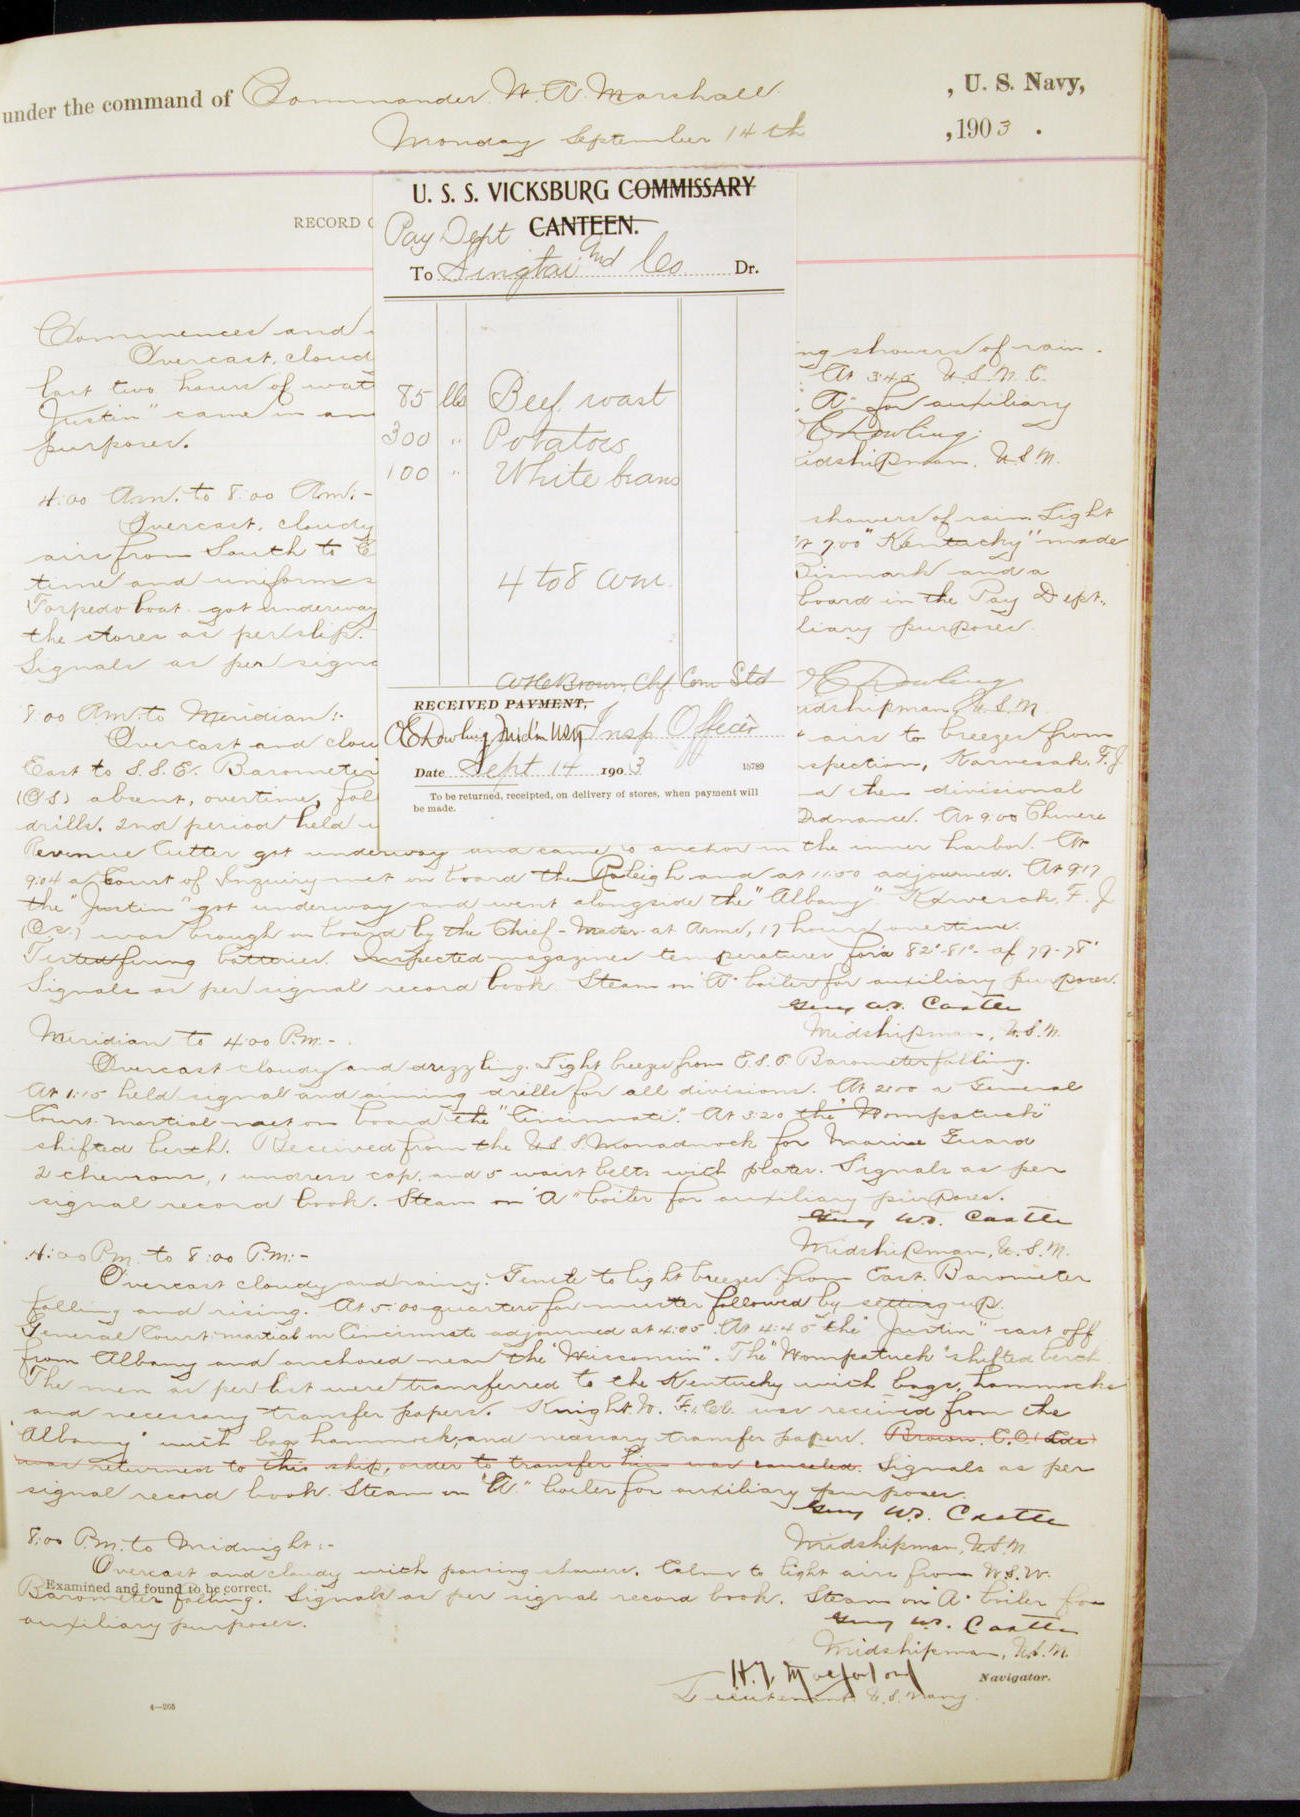 under the command of Commander W. A. Marshall, U. S. Navy,
Monday September 14th, 1903.
RECORD O
U. S. S. VICKSBURG COMMISSARY
Pay Dept CANTEEN.
To Singtai and Co Dr.
85 lbs Beef roast
300 " Potatoes
100 " White beans
4 to 8 a.m.
Brown, Chf. Com Std
RECEIVED PAYMENT,
C Dowling Mid'n USN Insp Officer
Date Sept 14 1903
15789
To be returned, receipted, on delivery of stores, when payment will
be made.
Commences and
Overcast, cloud ng showers of rain.
last two hours of wat At 3:45 U.S.N.C.
"Justin" came in an "A" for auxiliary
purposes. C Dowling
idshipman, U.S.N.
4:00 A.m. to 8:00 A.m.:-
Overcast, cloudy showers of rain. Light
airs from South to E t 7:00 "Kentucky" made
time and uniform s Bismark and a
Torpedo boat got underway board in the Pay Dept.,
the stores as per slip. liary purposes.
Signals as per signa
C Dowling
idshipman U.S.N.
8:00 A.m. to Meridian:-
Overcast and clou airs to breezes from
East to S.S.E. Barometer spection, F. J.
(O.S.) absent, overtime, fol d then divisional
drills. 2nd period held Ordnance. At 9:00 Chinese
Revenue Cutter got underway and came to anchor in the inner harbor. At
9:04 a Court of Inquiry met on board the Raleigh and at 11:50 adjourned. At 9:17
the "Justin" got underway and went alongside the "Albany". F. J.
(O.S.) was brough on board by the Chief-Master-at Arms, 17 hours overtime.
Tested firing batteries. Inspected magazines temperatures for'd 82°-81°- af 79-78°
Signals as per signal record book. Steam on "A" boiler for auxiliary purposes.
Guy W.S. Castle
Midshipman, U.S.N.
Meridian to 4:00 P.M.-
Overcast cloudy and drizzling. Light breeze from E.S.E. Barometer falling.
At 1:15 held signal and aiming drills for all divisions. At 2:00 a General
Court-martial met on board the "Cincinnati". At 3:20 the "Wompatuck"
shifted berth. Received from the U.S.S. Monadnock for Marine Guard
2 chevrons, 1 undress cap, and 5 waist belts with plates. Signals as per
signal record book. Steam on "A" boiler for auxiliary purposes.
Guy W.S. Castle
Midshipman, U.S.N.
4:00 P.m. to 8:00 P.m:-
Overcast cloudy and rainy. Gentle to light breezes from East. Barometer
falling and rising. At 5:00 quarters for muster followed by setting-up.
General Court-martial on Cincinnati adjourned at 4:05. At 4:45 the "Justin" cast off
from Albany and anchored near the "Wisconsin". The "Wompatuck" shifted berth
The men as per list were transferred to the Kentucky with bags, hammocks
and necessary transfer papers. Knight W. F. was received from the
"Albany" with bag hammock, and necessary transfer papers. Brown, C.O. (Lds)
was returned to this ship, order to transfer him was canceled. Signals as per
signal record book. Steam on "A" boiler for auxiliary purposes.
Guy W.S. Castle
Midshipman, U.S.N.
8:00 P.M. to Midnight:-
Overcast and cloudy with passing showers. Calms to light airs from W.S.W.
Examined and found to be correct.
Barometer falling. Signals as per signal record book. Steam on "A" boiler for
auxiliary purposes.
Guy W.S. Castle
Midshipman, U.S.N.
Lieutenant U.S. Navy. Navigator.
4—265